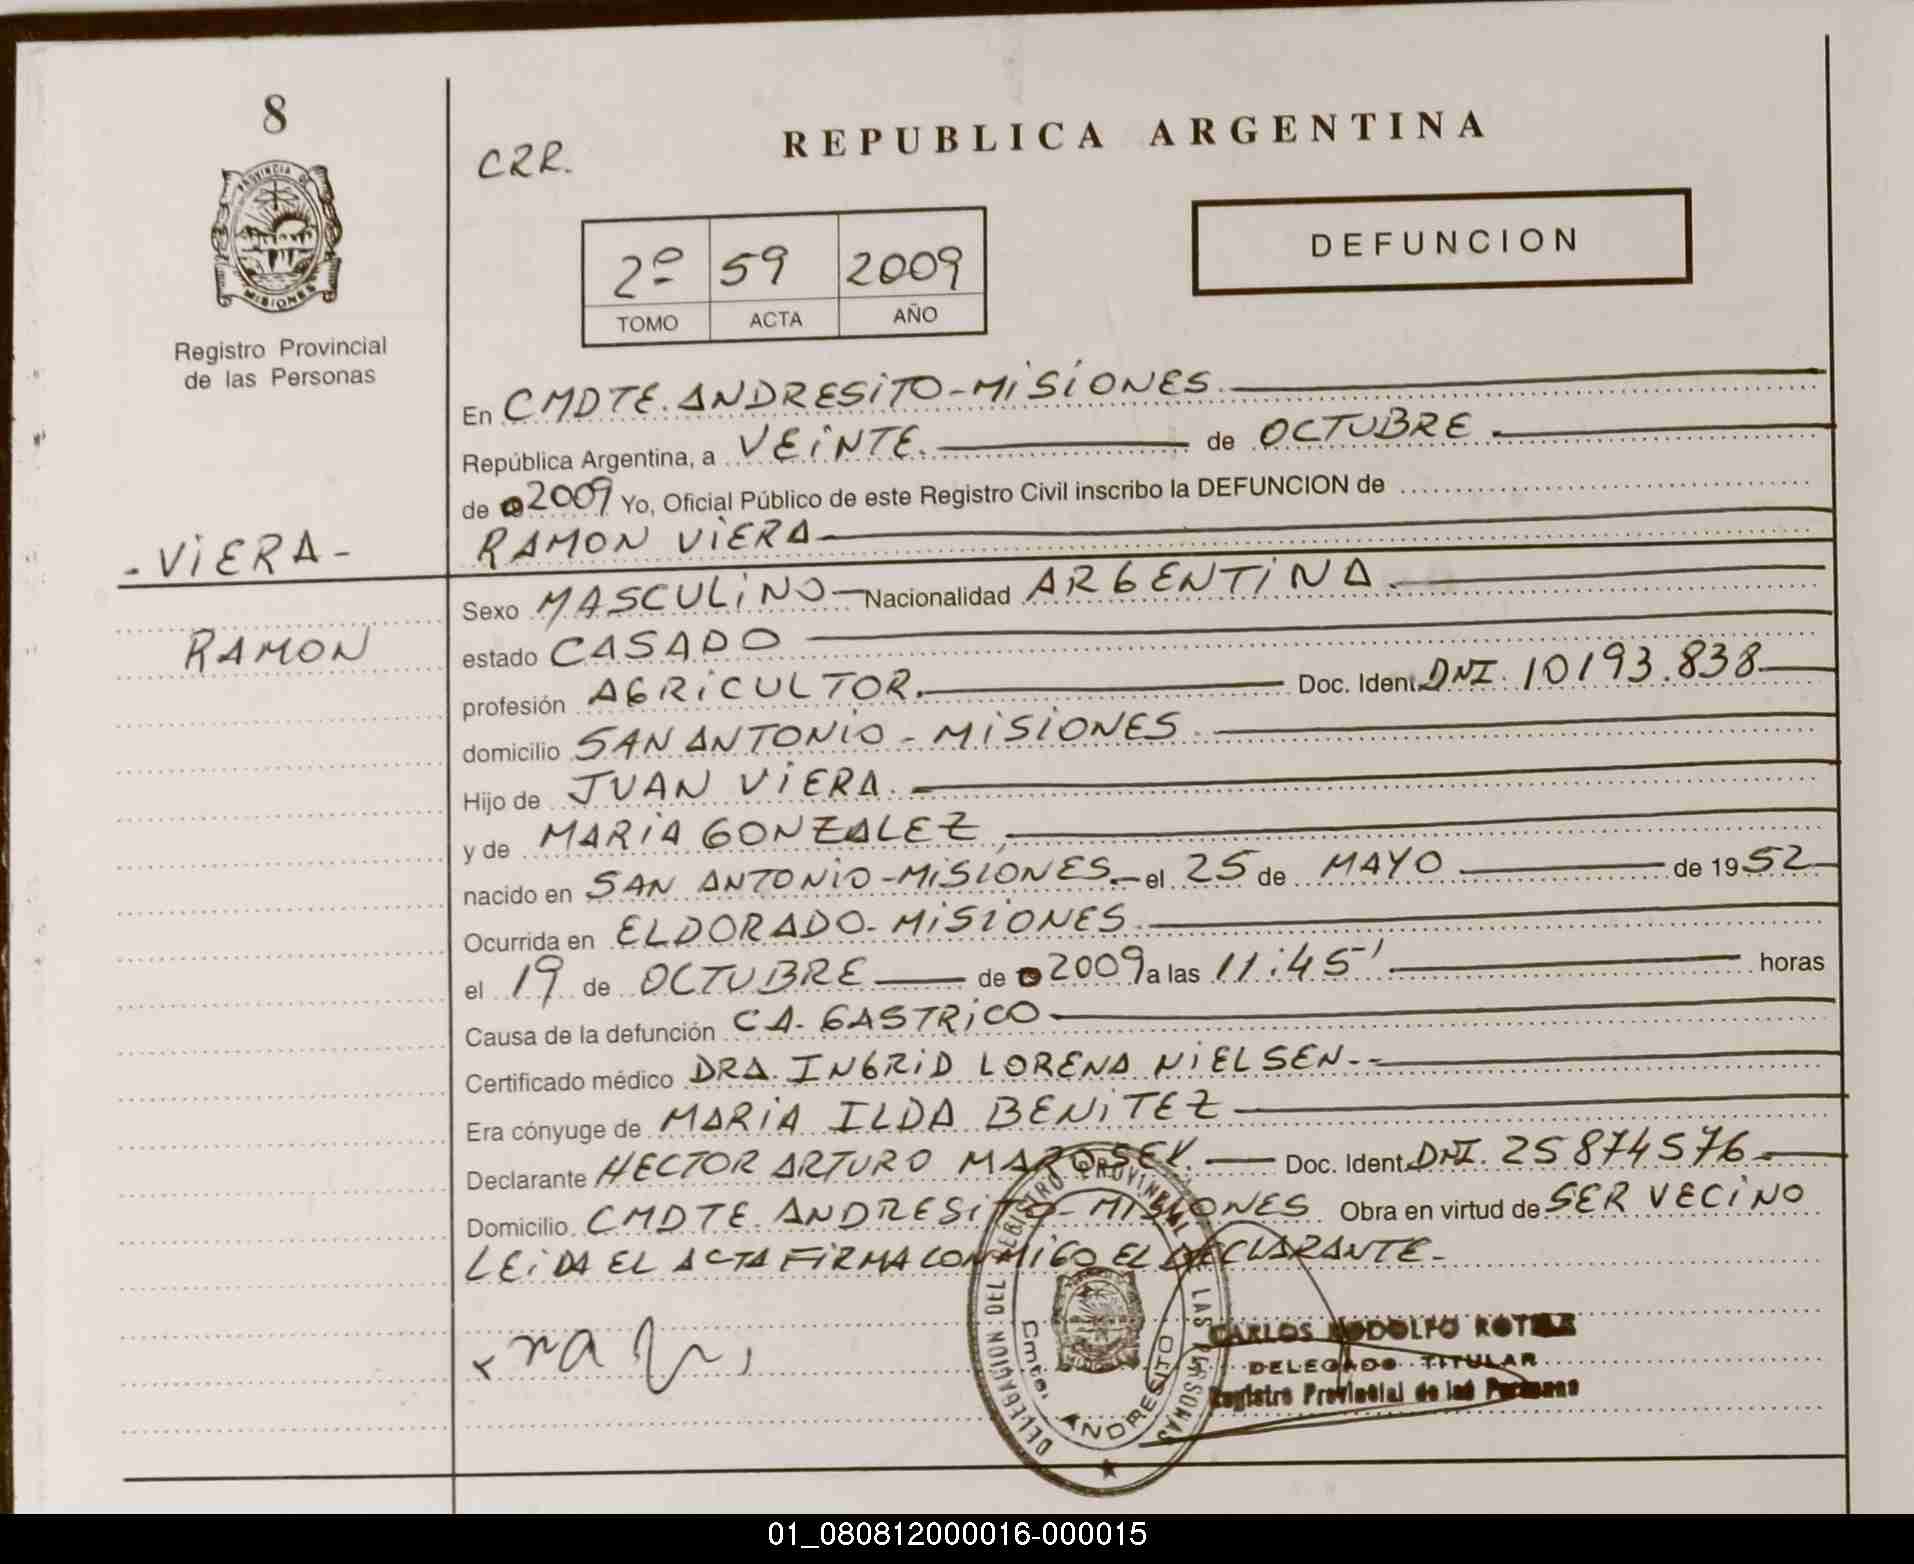 8
CRR.
REPUBLICA ARGENTINA
PROVINCIA DE
MISIONES
Registro Provincial
de las Personas
2º 59 2009
TOMO ACTA AÑO
DEFUNCION
En CMDTE. ANDRESiTO-MiSiONES.
República Argentina, a VEiNTE. de OCTUBRE
de 2009 Yo, Oficial Público de este Registro Civil inscribo la DEFUNCION de
-ViERA- RAMON ViERA
Sexo MASCULiNO Nacionalidad ARGENTiNA
RAMON estado CASADO
profesión AGRiCULTOR. Doc. Ident. DNI. 10193.838
domicilio SAN ANTONiO - MiSiONES
Hijo de JUAN ViERA.
y de MARiA GONZALEZ,
nacido en SAN ANTONiO-MiSiONES el 25 de MAYO de 1952
Ocurrida en ELDORADO-MiSiONES
el 19 de OCTUBRE de 2009 a las 11:45' horas
Causa de la defunción CA-GASTRiCO
Certificado médico DRA. INGRiD LORENA NiELSEN.-
Era cónyuge de MARiA ILDA BENiTEZ
Declarante HECTOR ARTURO Doc. Ident. DNI. 25874576
Domicilio CMDTE. ANDRESiTO-MiSiONES Obra en virtud de SER VECiNO
LEiDA EL ACTA FiRMA CONMiGO EL DECLARANTE-
DELEGACION DEL REGISTRO PROVINCIAL DE LAS PERSONAS
Cmte. ANDRESITO
CARLOS RODOLFO
DELEGADO TITULAR
Registro Provincial de las Personas
01_080812000016-000015